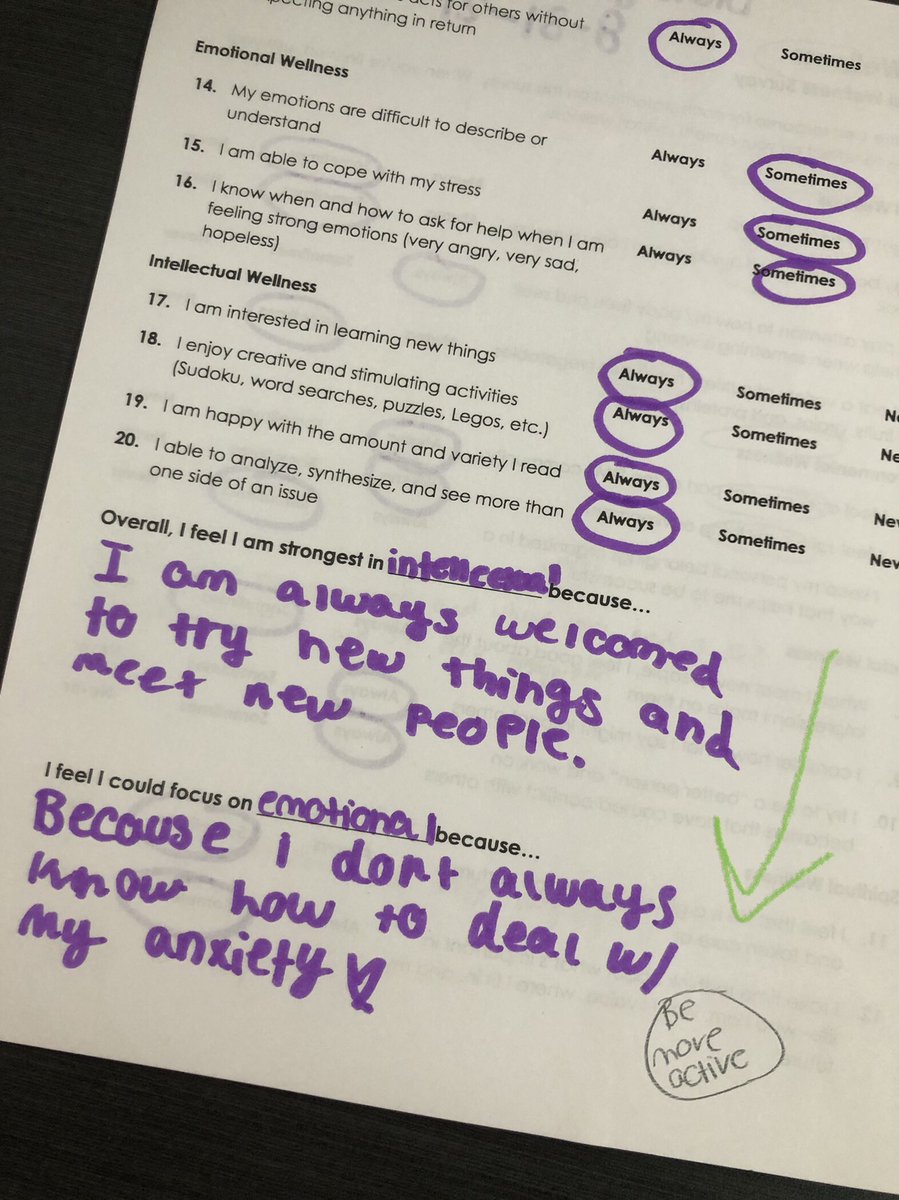 for others without
anything in return
Always Sometimes
Emotional Wellness
14. My emotions are difficult to describe or
understand
Always Sometimes
15. I am able to cope with my stress
Always Sometimes
16. I know when and how to ask for help when I am
feeling strong emotions (very angry, very sad,
hopeless)
Always Sometimes
Intellectual Wellness
17. I am interested in learning new things
Always Sometimes Ne
18. I enjoy creative and stimulating activities
(Sudoku, word searches, puzzles, Legos, etc.)
Always Sometimes Ne
19. I am happy with the amount and variety I read
Always Sometimes Nev
20. I able to analyze, synthesize, and see more than
one side of an issue
Always Sometimes Nev
Overall, I feel I am strongest in intellectual because...
I am always welcomed
to try new things and
meet new people.
I feel I could focus on emotional because...
Because i dont always
know how to deal w/
my anxiety
Be
more
active